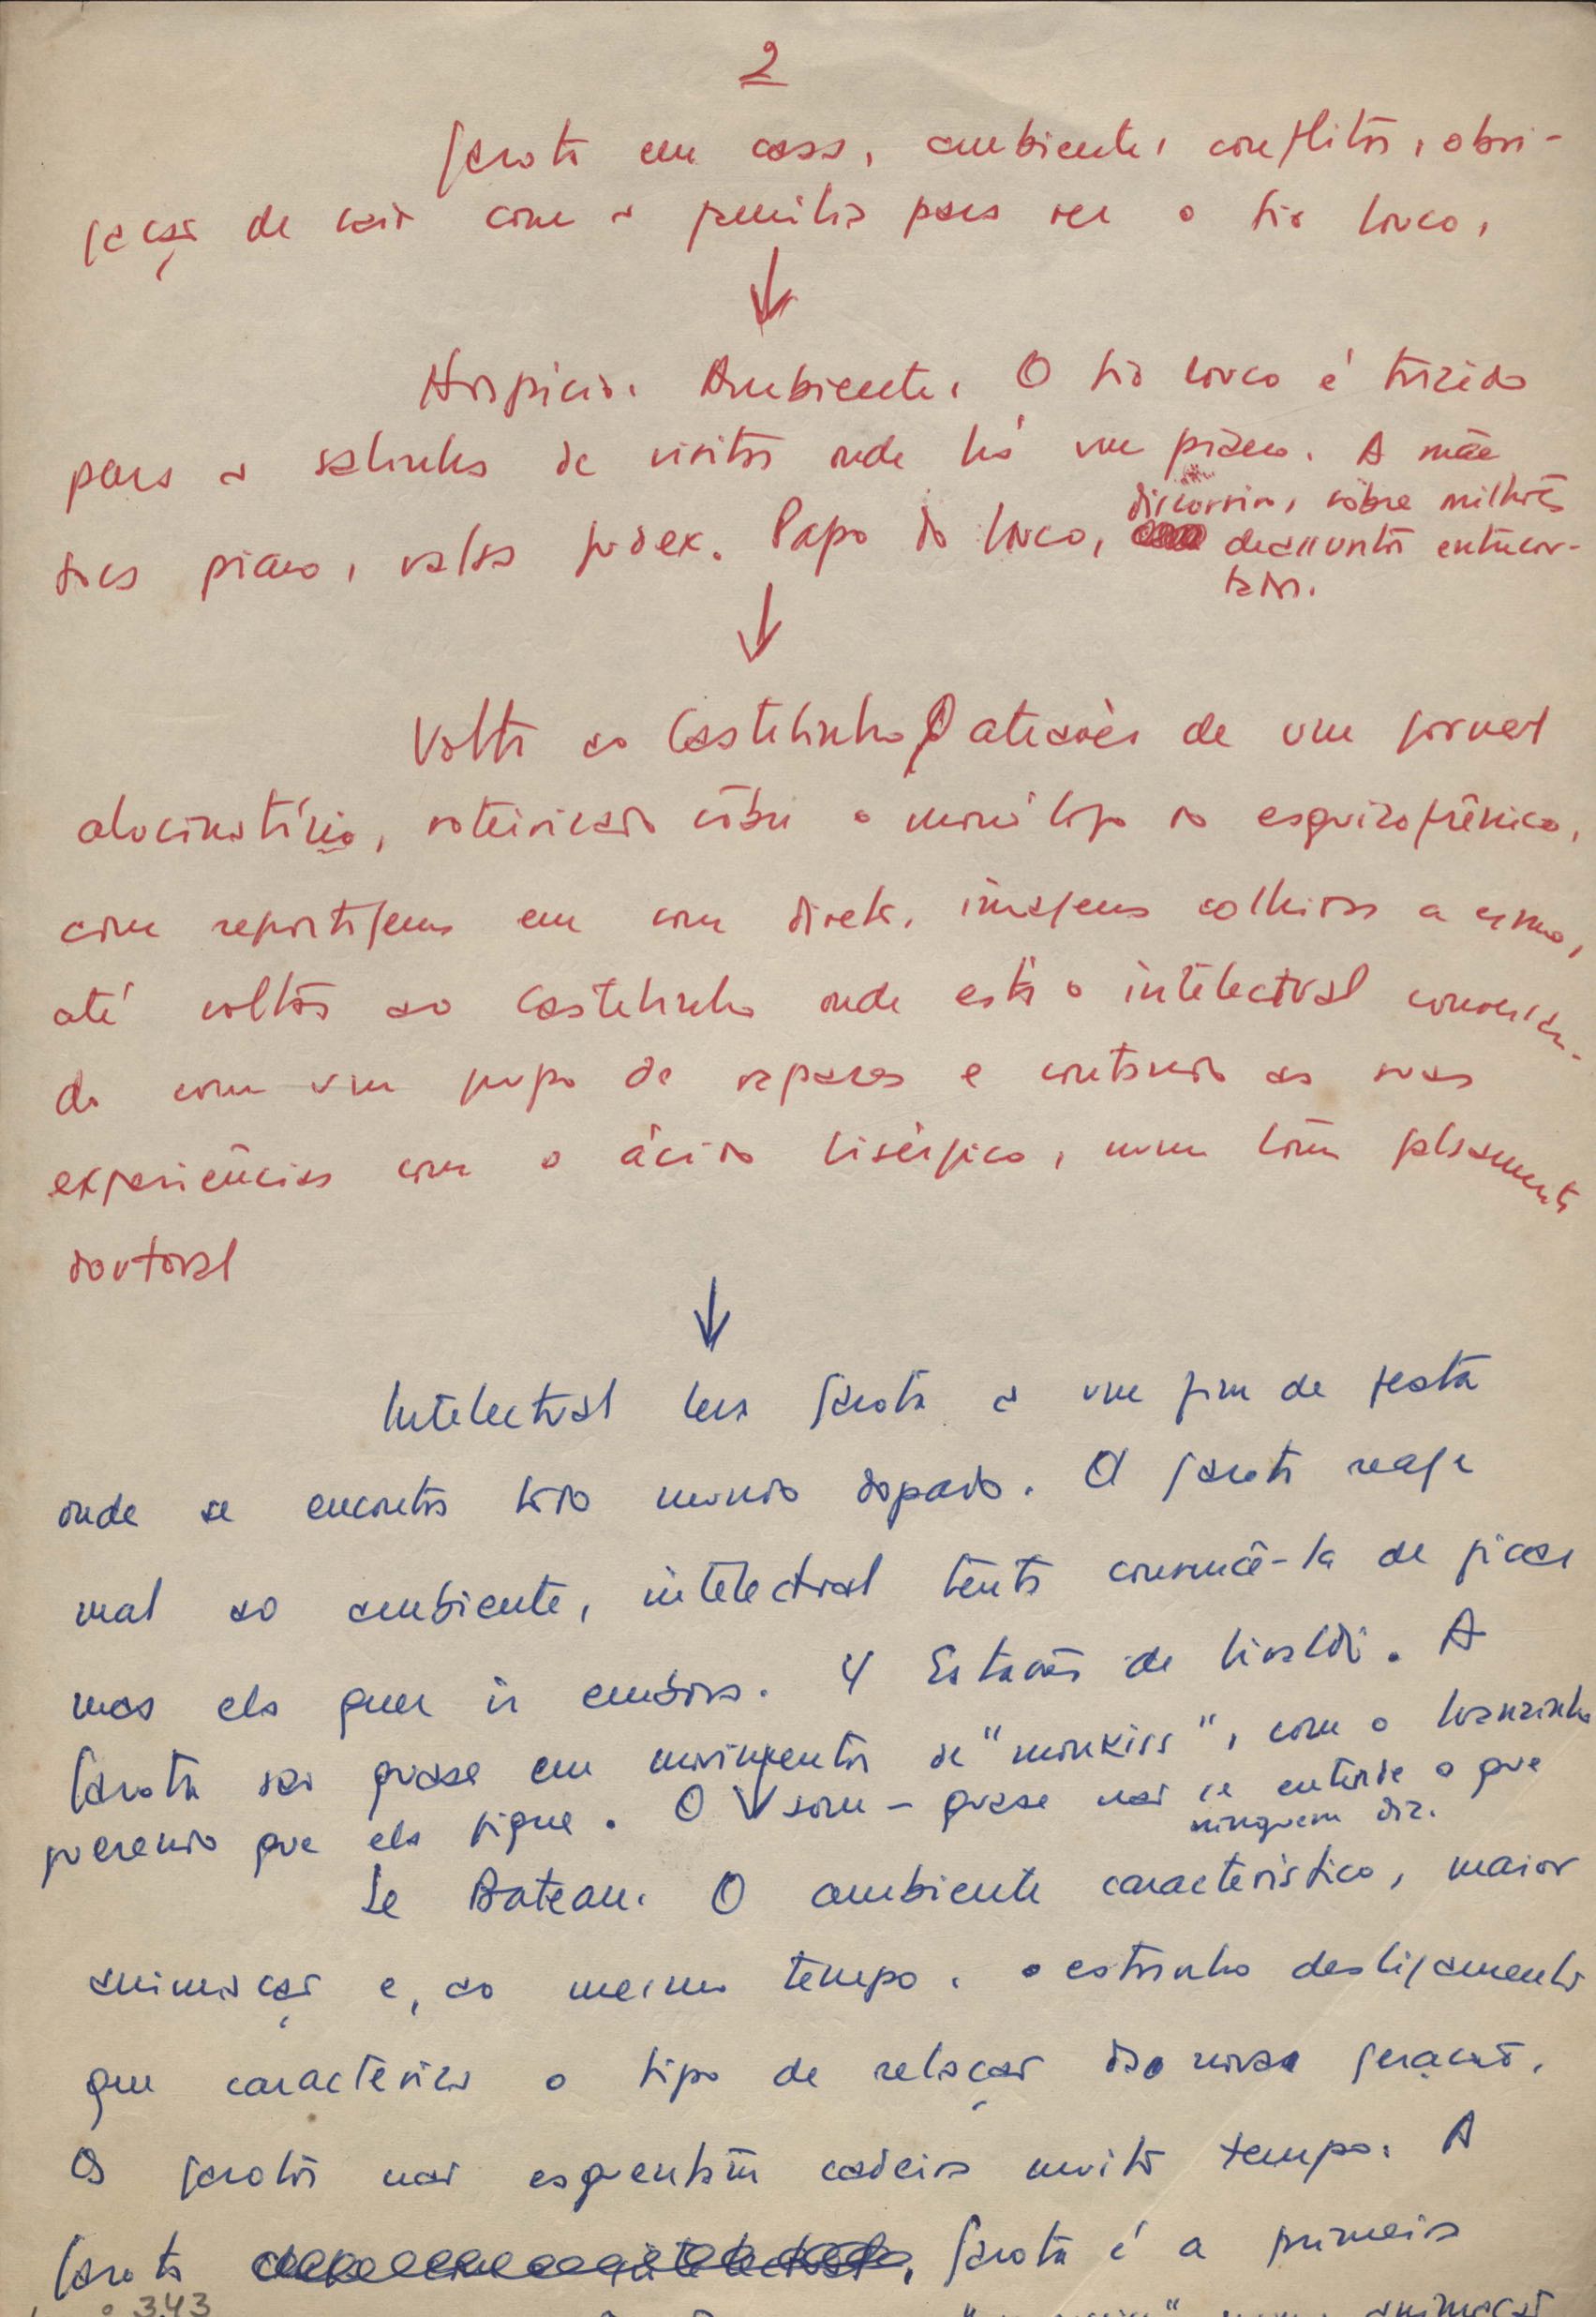 2
Garota em casa, ambiente, conflitos, obri-
gação de sair com a família para ver o tio louco.
Hospício. Ambiente. O tio louco é trazido
para a salinha de visitas onde há um piano. A mãe
toca piano, valsa Judex. Papo do louco, discursivo, sôbre milhões
de assuntos entrecor-
tados.
Volta ao Castelinho através de um jornal
alucinatório, roteirizado sôbre o monólogo do esquizofrênico,
com reportagens em som direto, imagens colhidas a esmo,
até voltar ao Castelinho onde está o intelectual conversan-
do com um grupo de rapazes e contando as suas
experiências com o ácido lisérgico, num tom falsamente
doutoral
Intelectual leva garota a um fim de festa
onde se encontra todo mundo dopado. A garota reage
mal ao ambiente, intelectual tenta convencê-la de ficar
mas ela quer ir embora. 4 Estações de Vivaldi. A
garota sai quase em movimentos de "monkiss", com o
querendo que ela fique. O som - quase não se entende o que
ninguem diz.
Le Bateau. O ambiente caracteristico, maior
animação e, ao mesmo tempo, o estranho desligamento
que caracteriza o tipo de relação da nova geração.
Os garotos não esquentam cadeira muito tempo. A
garota garota é a primeira
343
animação